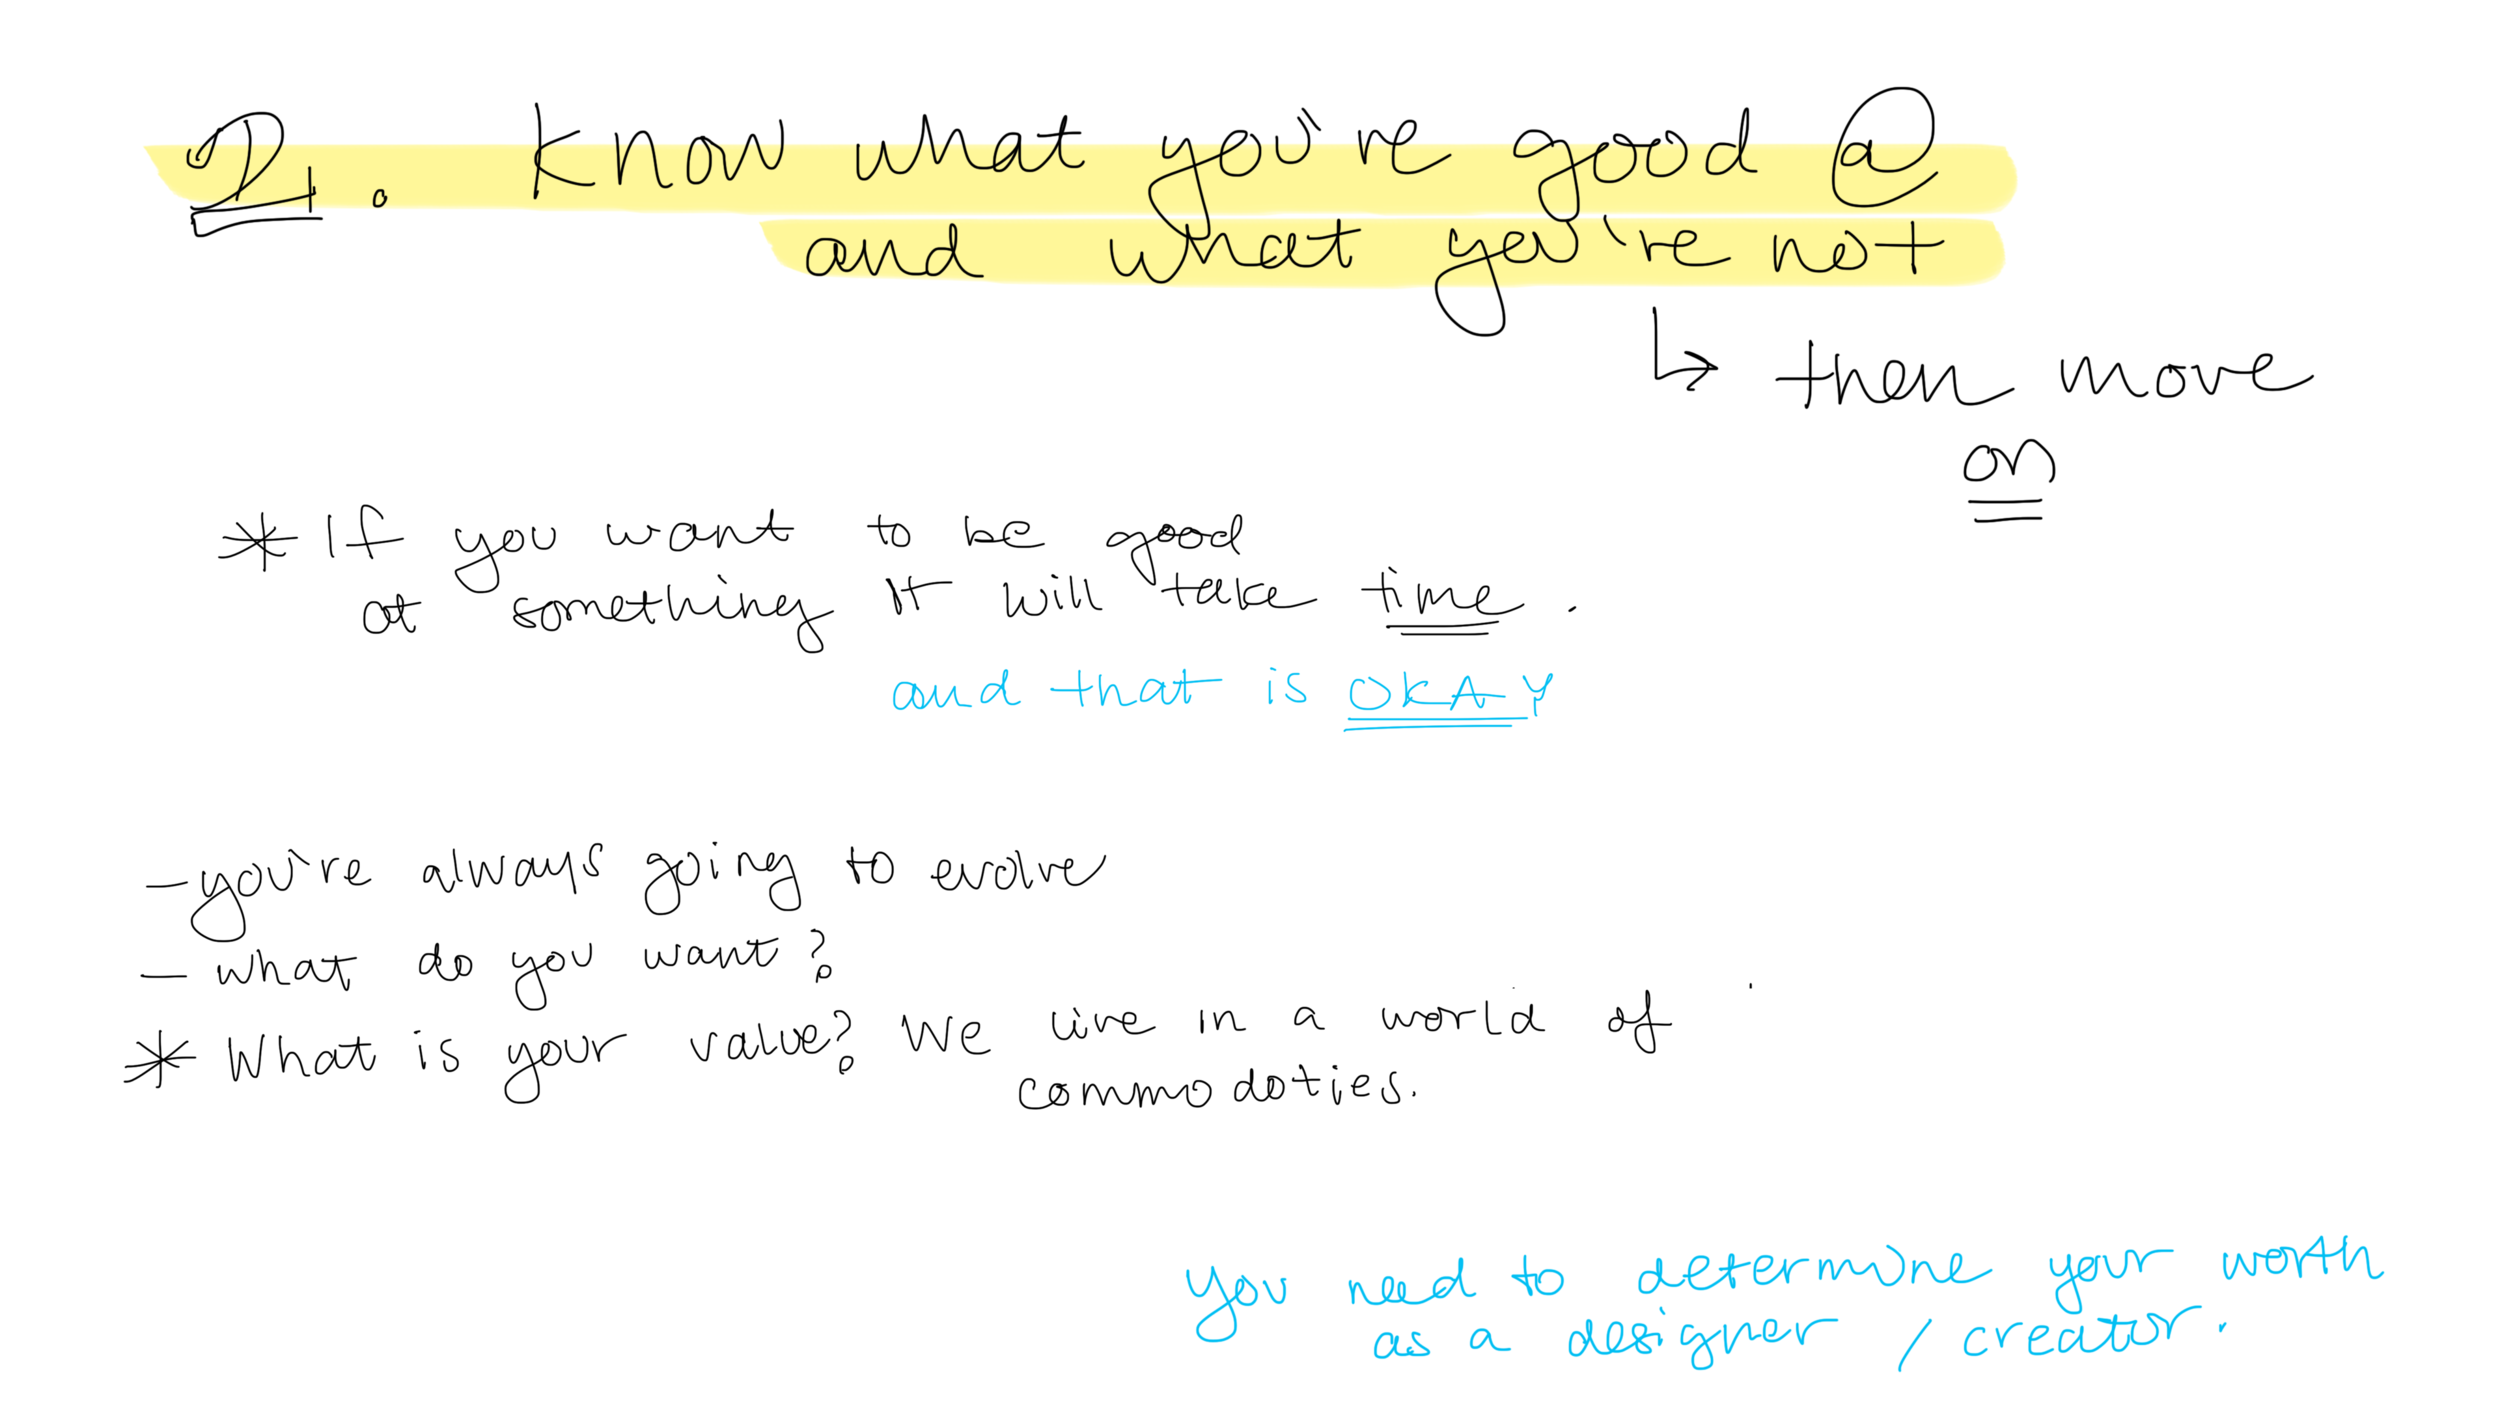 2. Know what you're good @
and what you're not
↳ then move
on
* If you want to be good
at something it will take time.
and that is OKAY
- you're always going to evolve
- what do you want?
* What is your value? We live in a world of
commodoties.
you need to determine your worth
as a designer / creator.